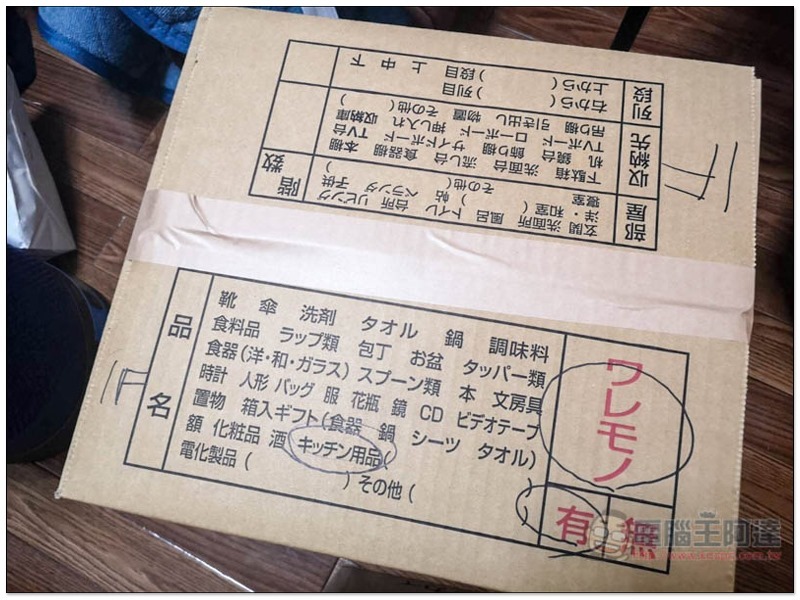 部屋
玄関 洗面所 風呂 トイレ 台所 リビング
洋・和室( )帖 ベランダ 子供
寝室 その他( )
階数
収納先
下駄箱 洗面台 流し台 食器棚 本棚
机 鏡台 飾り棚 サイドボード TV台
TVボード ローボード 押し入れ 収納庫
吊り棚 引き出し 物置 その他( )
列段
右から( )列目
上から( )段目 上 中 下
品名
靴 傘 洗剤 タオル 鍋 調味料
食料品 ラップ類 包丁 お盆 タッパー類
食器(洋・和・ガラス) スプーン類 本 文房具
時計 人形 バッグ 服 花瓶 鏡 CD ビデオテープ
置物 箱入ギフト(食器 鍋 シーツ タオル)
額 化粧品 酒 キッチン用品(
電化製品( )その他( )
ワレモノ
有・無
電腦王阿達
http://www.kocpc.com.tw